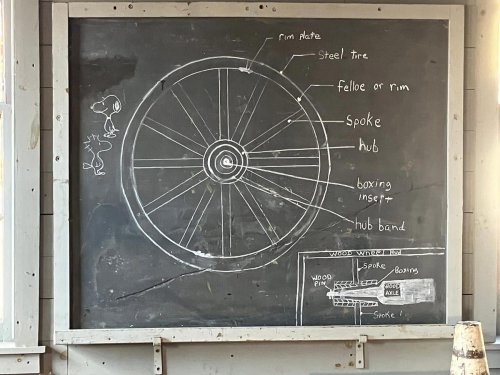 rim plate
Steel tire
felloe or rim
spoke
hub
boxing
insert
hub band
WOOD WHEEL HUB
spoke
Boxing
WOOD
PIN
WOOD
AXLE
Spoke